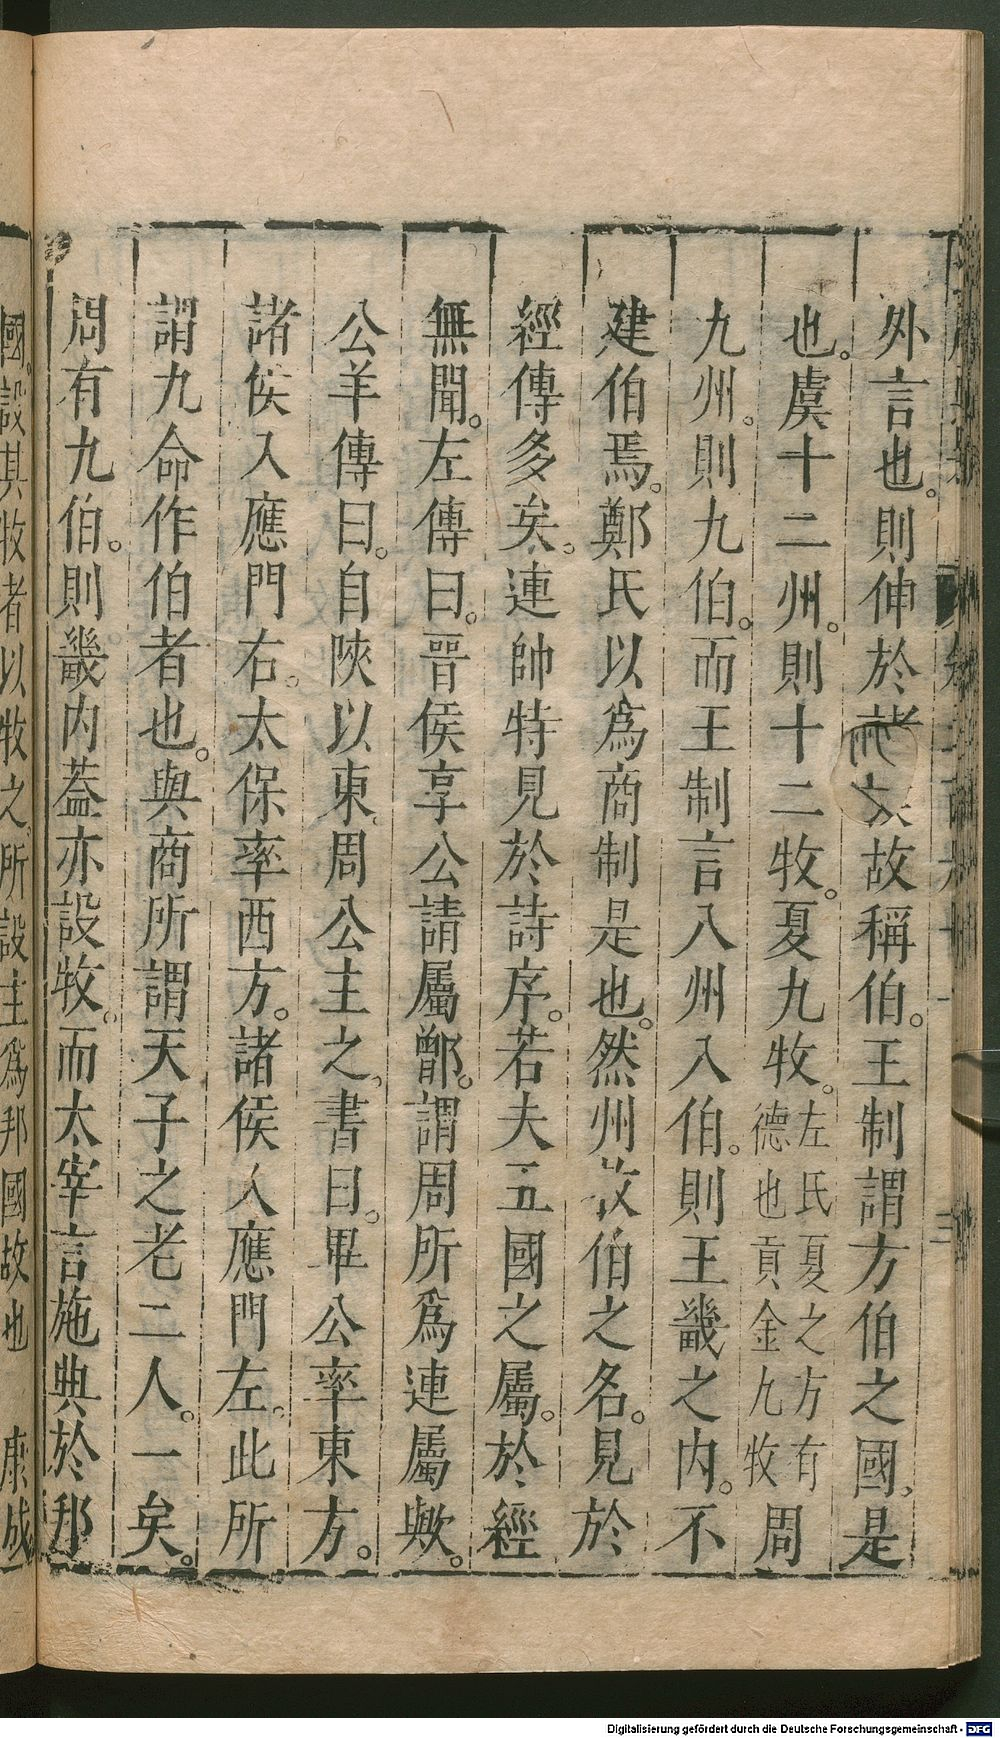 外言也。則伸於諸侯故稱伯。王制謂方伯之國、是
也。虞十二州。則十二牧。夏九牧。左氏夏之方有德也貢金九牧周
九州。則九伯。而王制言八州八伯。則王畿之內。不
建伯焉。鄭氏以爲商制是也。然州牧伯之名。見於
經傳多矣。連帥特見於詩序。若夫五國之屬。於經
無聞。左傳曰。晉侯享公請屬鄫。謂周所爲連屬歟。
公羊傳曰。自陝以東、周公主之、書曰。畢公率東方。
諸侯入應門右。太保率西方。諸侯入應門左。此所
謂九命作伯者也。與商所謂天子之老二人。一矣。
周有九伯。則畿內葢亦設牧。而太宰言施典於邦
國。設其牧者以牧之所設主爲邦國故也 康成
Digitalisierung gefördert durch die Deutsche Forschungsgemeinschaft - DFG